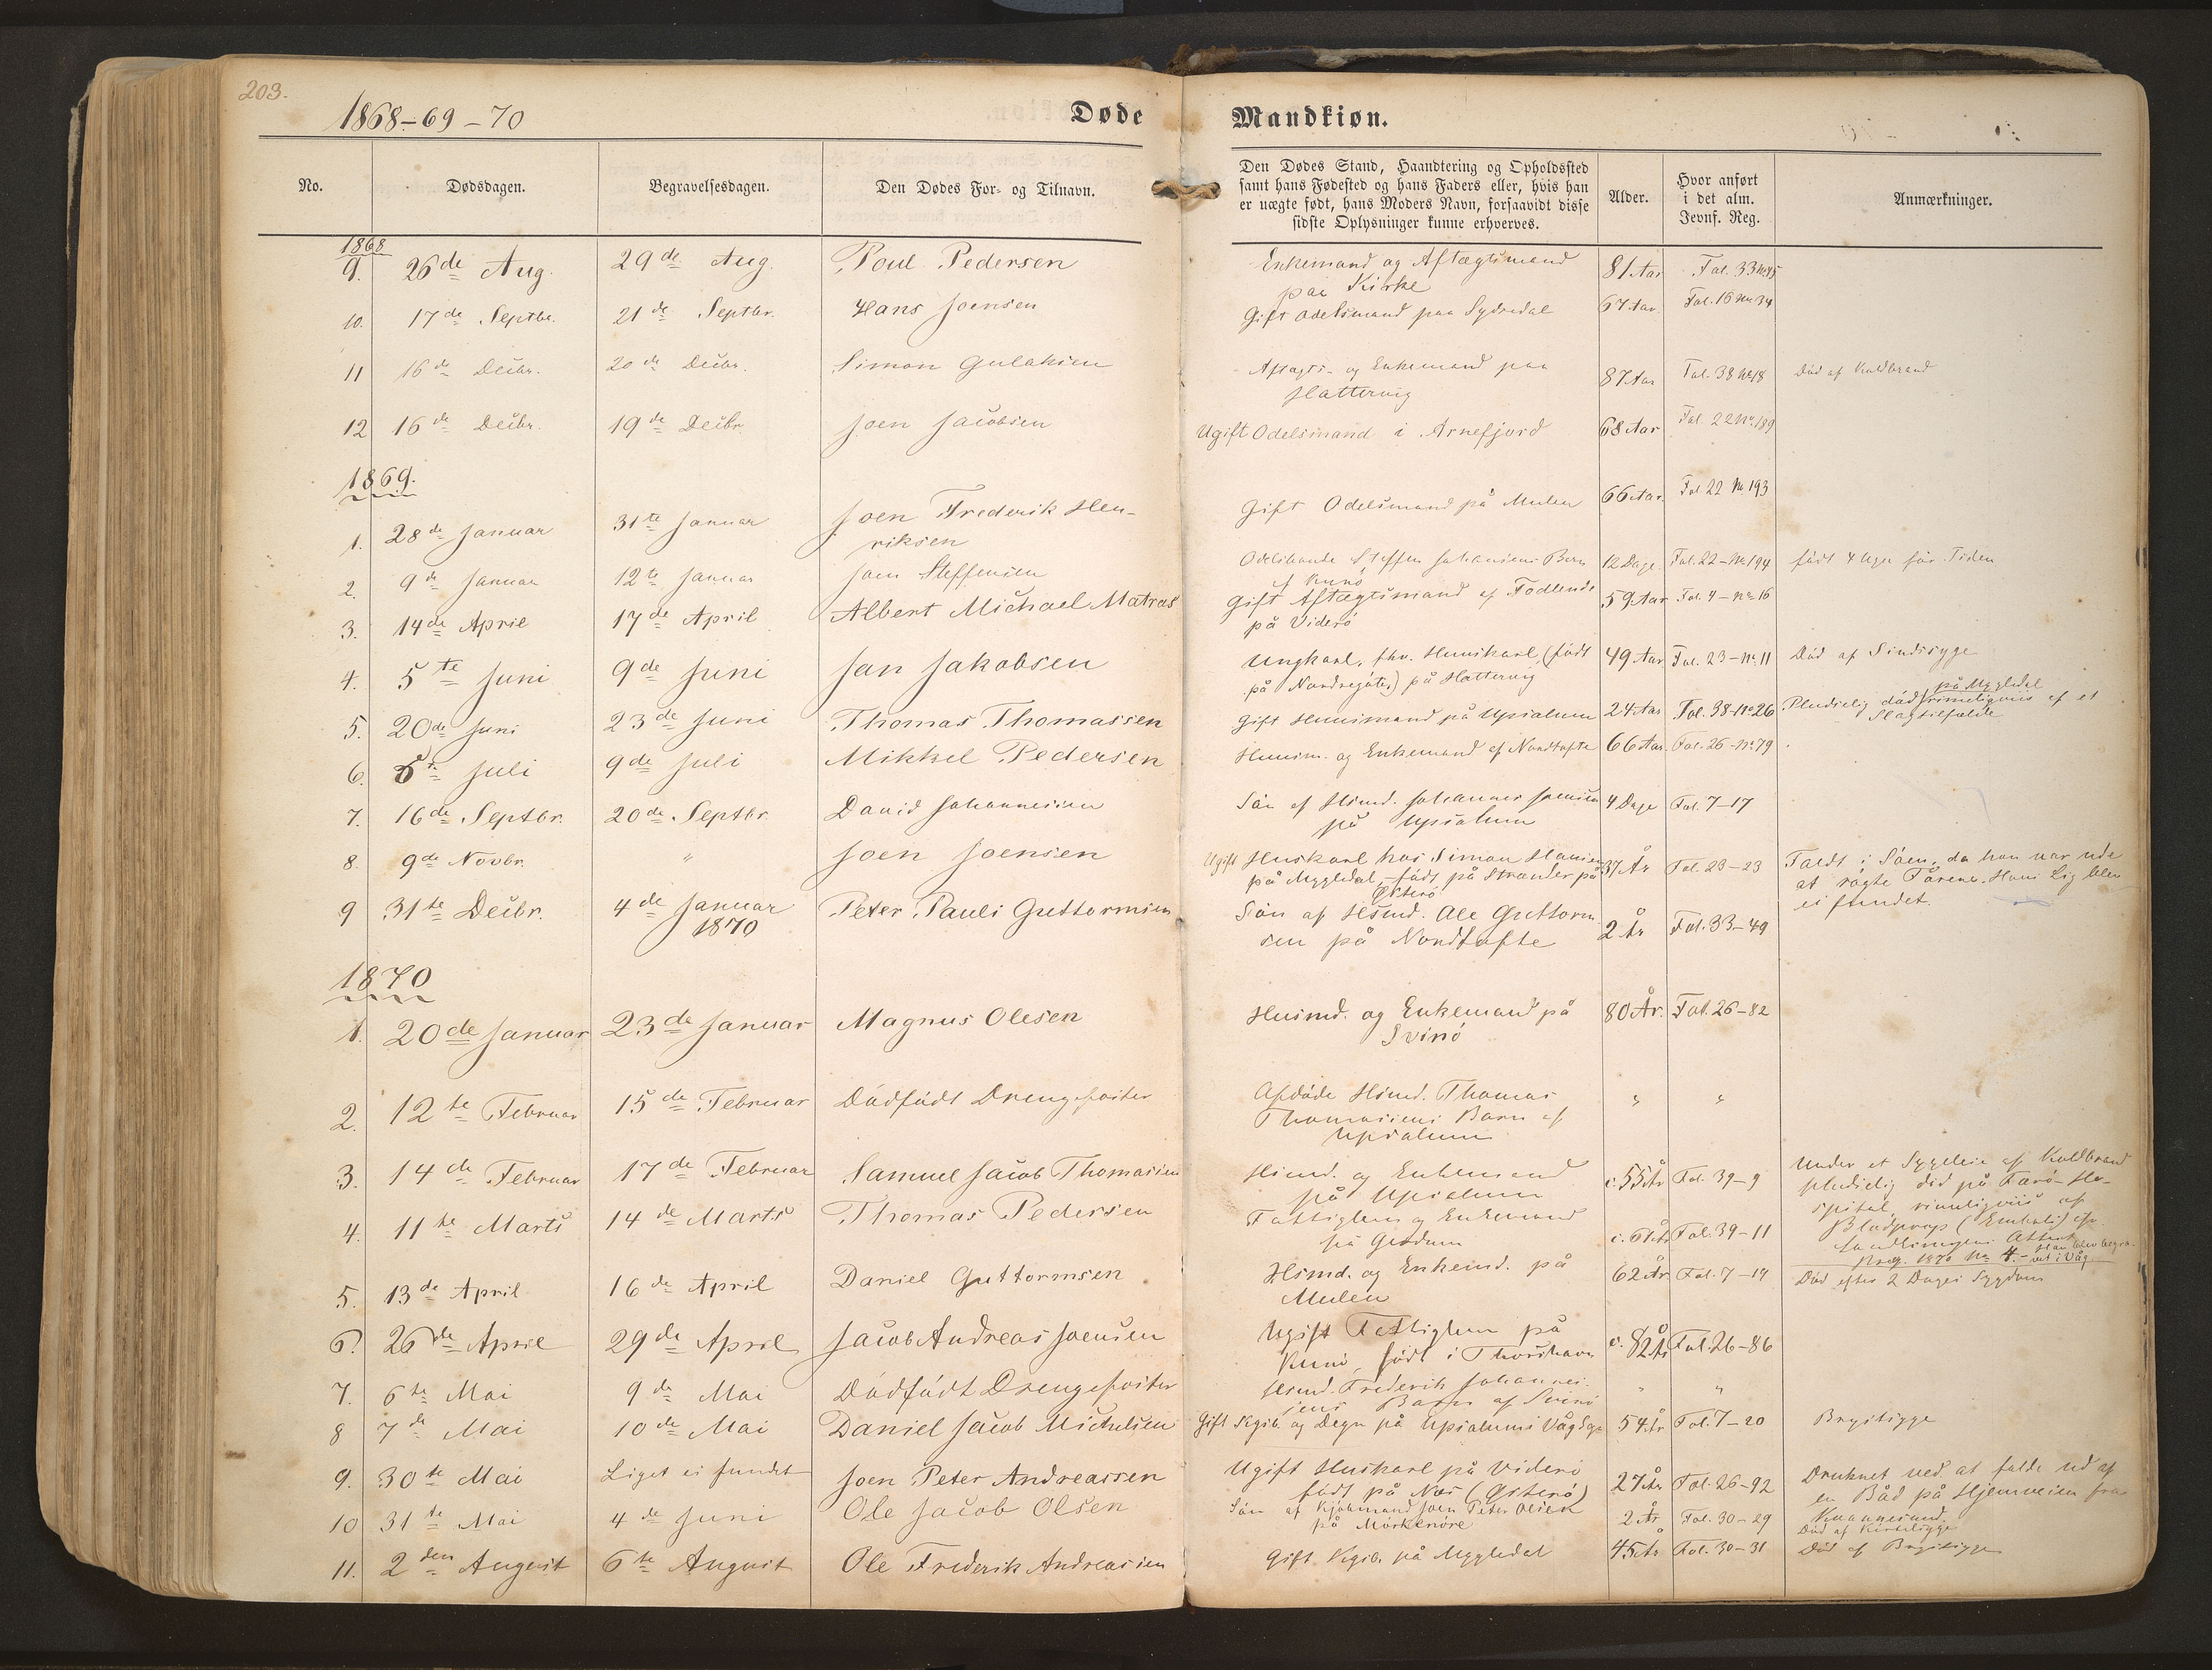 203.
1868-69-70
Døde
Mandkiøn.
No.
Dødsdagen.
Begravelsesdagen.
Den Dødes For- og Tilnavn.
Den Dødes Stand, Haandtering og Opholdssted
samt hans Fødested og hans Faders eller, hvis han
er uægte født, hans Moders Navn, forsaavidt disse
sidste Oplysninger kunne erhverves.
Alder.
Hvor anført
i det alm.
Jevnf. Reg.
Anmærkninger.
1868
9. 26de Aug. 29de Aug. Poul Pedersen Enkemand og Aftægtsmand 81 Aar Fol. 33 No 45
paa Kirke
10. 17de Septbr. 21de Septbr. Hans Joensen Gift Odelsmand paa Sydredal 67 Aar Fol. 16 No 34
11 16de Decbr. 20de Decbr. Simon Gulaksen Aftægts- og Enkemand paa 87 Aar Fol. 38 No 18 Död af Koldbrand
Hattervig
12 16de Decbr. 19de Decbr Joen Jacobsen Ugift Odelsmand i Arnefjord 68 Aar Fol. 22 No 189
1869.
1. 28de Januar 31te Januar Joen Frederik Hen- Gift Odelsmand på Mulen 66 Aar Fol. 22 No 193
riksen
2. 9de Januar 12te Januar Joen Steffensen Odelsbonde Steffen Johansens Barn 12 Dage Fol. 22 - No 194 födt 4 Uger för Tiden
af Kunö
3. 14de April 17de April Albert Michael Matras Gift Aftægtsmand af 59 Aar Fol. 4 - No 16
på Viderö
4. 5te Juni 9de Juni Jan Jakobsen Ungkarl, fhv. Huuskarl, (födt 49 Aar Fol. 23 - No 11 Död af Sindssyge
på Nordregöte) på Hattervig
5. 20de Juni 23de Juni Thomas Thomassen Gift Huusmand på Upsalum 24 Aar Fol. 38 - No 26 Pludselig död på Mygledal rimeligviis af et
Slagtilfælde
6. 5te Juli 9de Juli Mikkel Pedersen Huusm. og Enkemand af Nordtofte 66 Aar Fol. 26 - No 79
7. 16de Septbr. 20de Septbr. David Johannesen Sön af Hsmd. Johannes Joensen 4 Dage Fol. 7-17
på Upsalum
8. 9de Novbr. " Joen Joensen Ugift Huskarl hos Simon Hansen 37 År Fol. 23-23 Faldt i Söen, da han var ude
på Mygledal, födt på Strænder på at rögte Fårene. Hans Lig blev
Österö ei fundet.
9 31te Decbr. 4de Januar Peter Pauli Guttormsen Sön af Hsmd. Ole Guttorm- 2 År Fol. 33-49
1870 sen på Nordtofte
1870
1. 20de Januar 23de Januar Magnus Olesen Husmd. og Enkemand på 80 År. Fol. 26-82
Svinö
2. 12te Februar 15de Februar Dödfödt Drengefoster Afdöde Hsmd. Thomas " "
Thomassens Barn af
Upsalum
3. 14de Februar 17de Februar Samuel Jacob Thomasen Hsmd. og Enkemand c. 55 År Fol. 39-9 Under et Sygeleie af Koldbrand
på Upsalum pludselig död på Færö Ho-
4. 11te Marts 14de Marts Thomas Pedersen Fattiglem og Enkemand Fol. 39-11 spital, rimeligviis af
på Blodprop (Emboli) efr
Attest
1870 No 4. - Han blev begra-
vet i Våg
5. 13de April 16de April Daniel Guttormsen Hsmd. og Enkemd. på 62 År Fol. 7-19 Död efter 2 Dages Sygdom
Mulen
6. 26de April 29de April Jacob Andreas Joensen Ugift Fattiglem på c. 82 År Fol. 26-86
Kunö, födt i Thorshavn
7. 6te Mai 9de Mai Dödfödt Drengefoster Hsmd. Frederik Johanne- " "
sens Barn af Svinö
8 7de Mai 10de Mai Daniel Jacob Michelsen Gift Kgsb. og Degn på Upsalum i Vågsgn 54 År Fol. 7-20 Brystsyge
9. 30te Mai Liget ei fundet Joen Peter Andreassen Ugift Huskarl på Viderö 27 År Fol. 26-92 Druknet ved at falde ud af
födt på Næs (Österö) en Båd på Hjemveien fra
Kvannesund.
10 31te Mai 4de Juni Ole Jacob Olsen Sön af Kjöbmand Joen Peter Olsen 2 År Fol. 30-29 Död af Kirtelsyge
på Mörkenöre
11. 2den August 6te August Ole Frederik Andreasen Gift Kgsb. på Mygledal 45 År Fol. 30-31 Död af Brystsyge